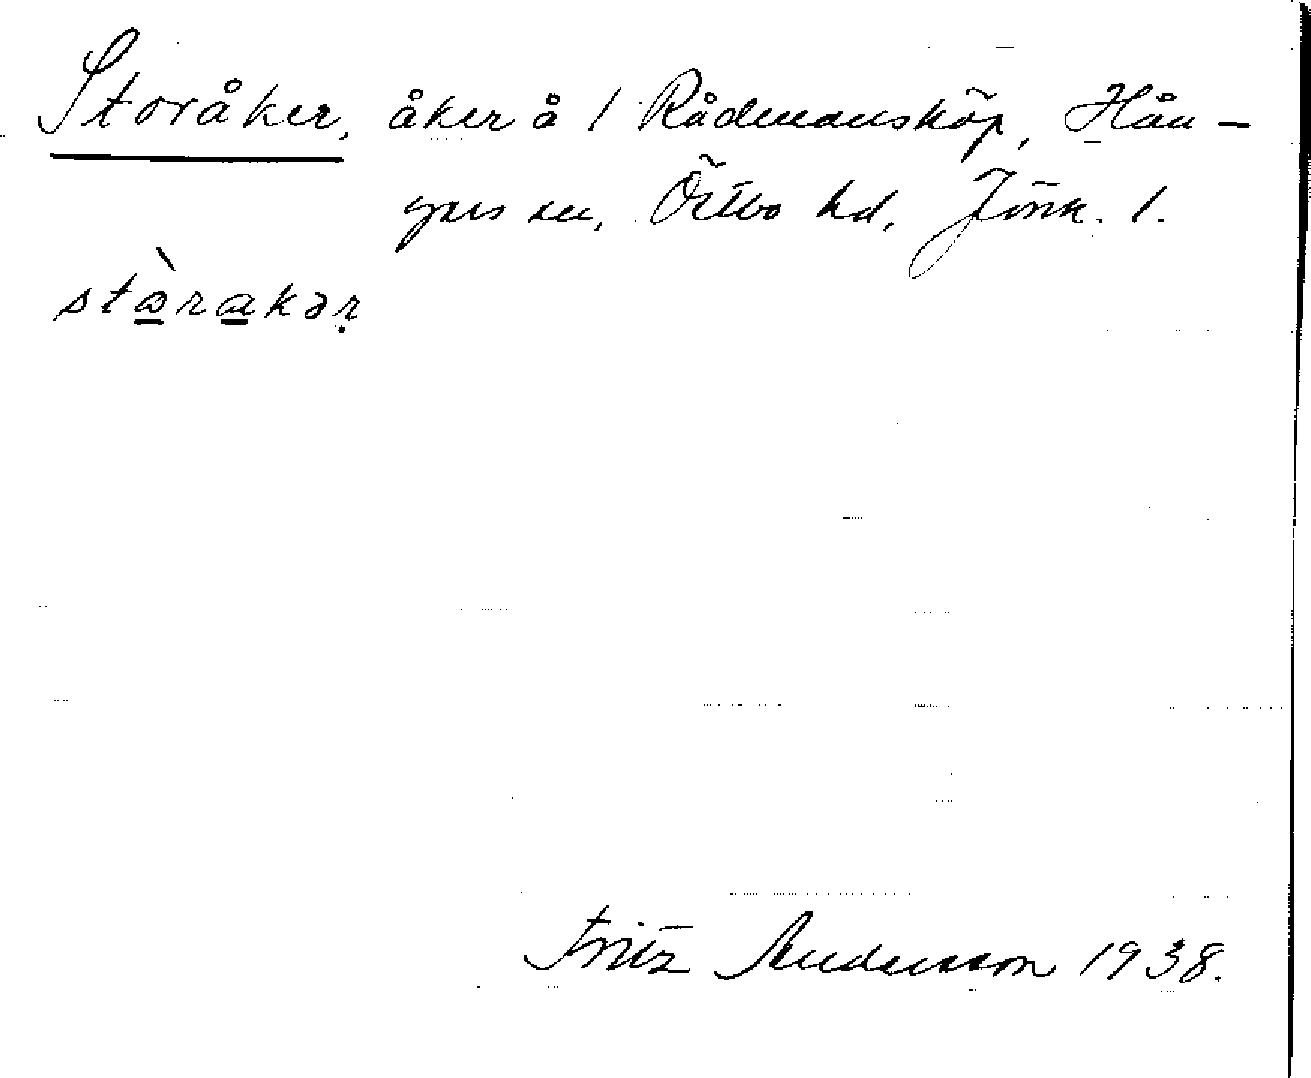 Storåker, åker å 1 Rådmansköp, Hån-
gers sn, Östbo hd, Jönk. l.
stòrakər
Fritz Andersson 1938.